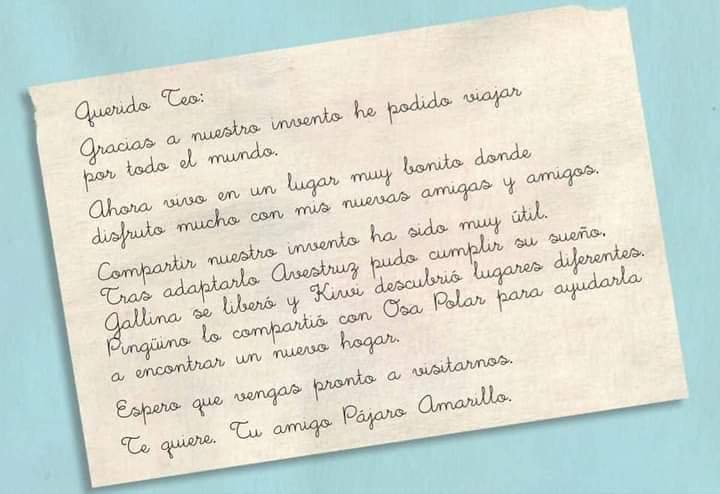 Querido Teo:
Gracias a nuestro invento he podido viajar
por todo el mundo.
Ahora vivo en un lugar muy bonito donde
disfruto mucho con mis nuevas amigas y amigos.
Compartir nuestro invento ha sido muy útil.
Tras adaptarlo Avestruz pudo cumplir su sueño,
Gallina se liberó y Kiwi descubrió lugares diferentes.
Pingüino lo compartió con Osa Polar para ayudarla
a encontrar un nuevo hogar.
Espero que vengas pronto a visitarnos.
Te quiere. Tu amigo Pájaro Amarillo.